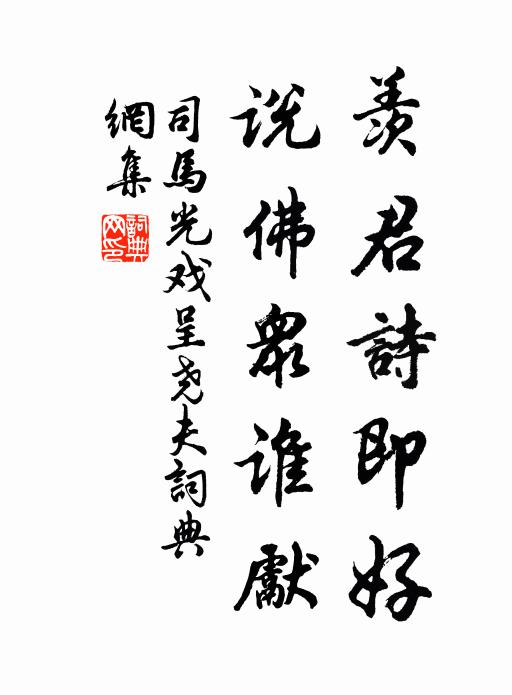 羡君詩即好
说佛眾谁獻
司馬光戏呈尧夫詞典
網集
詞典
网印